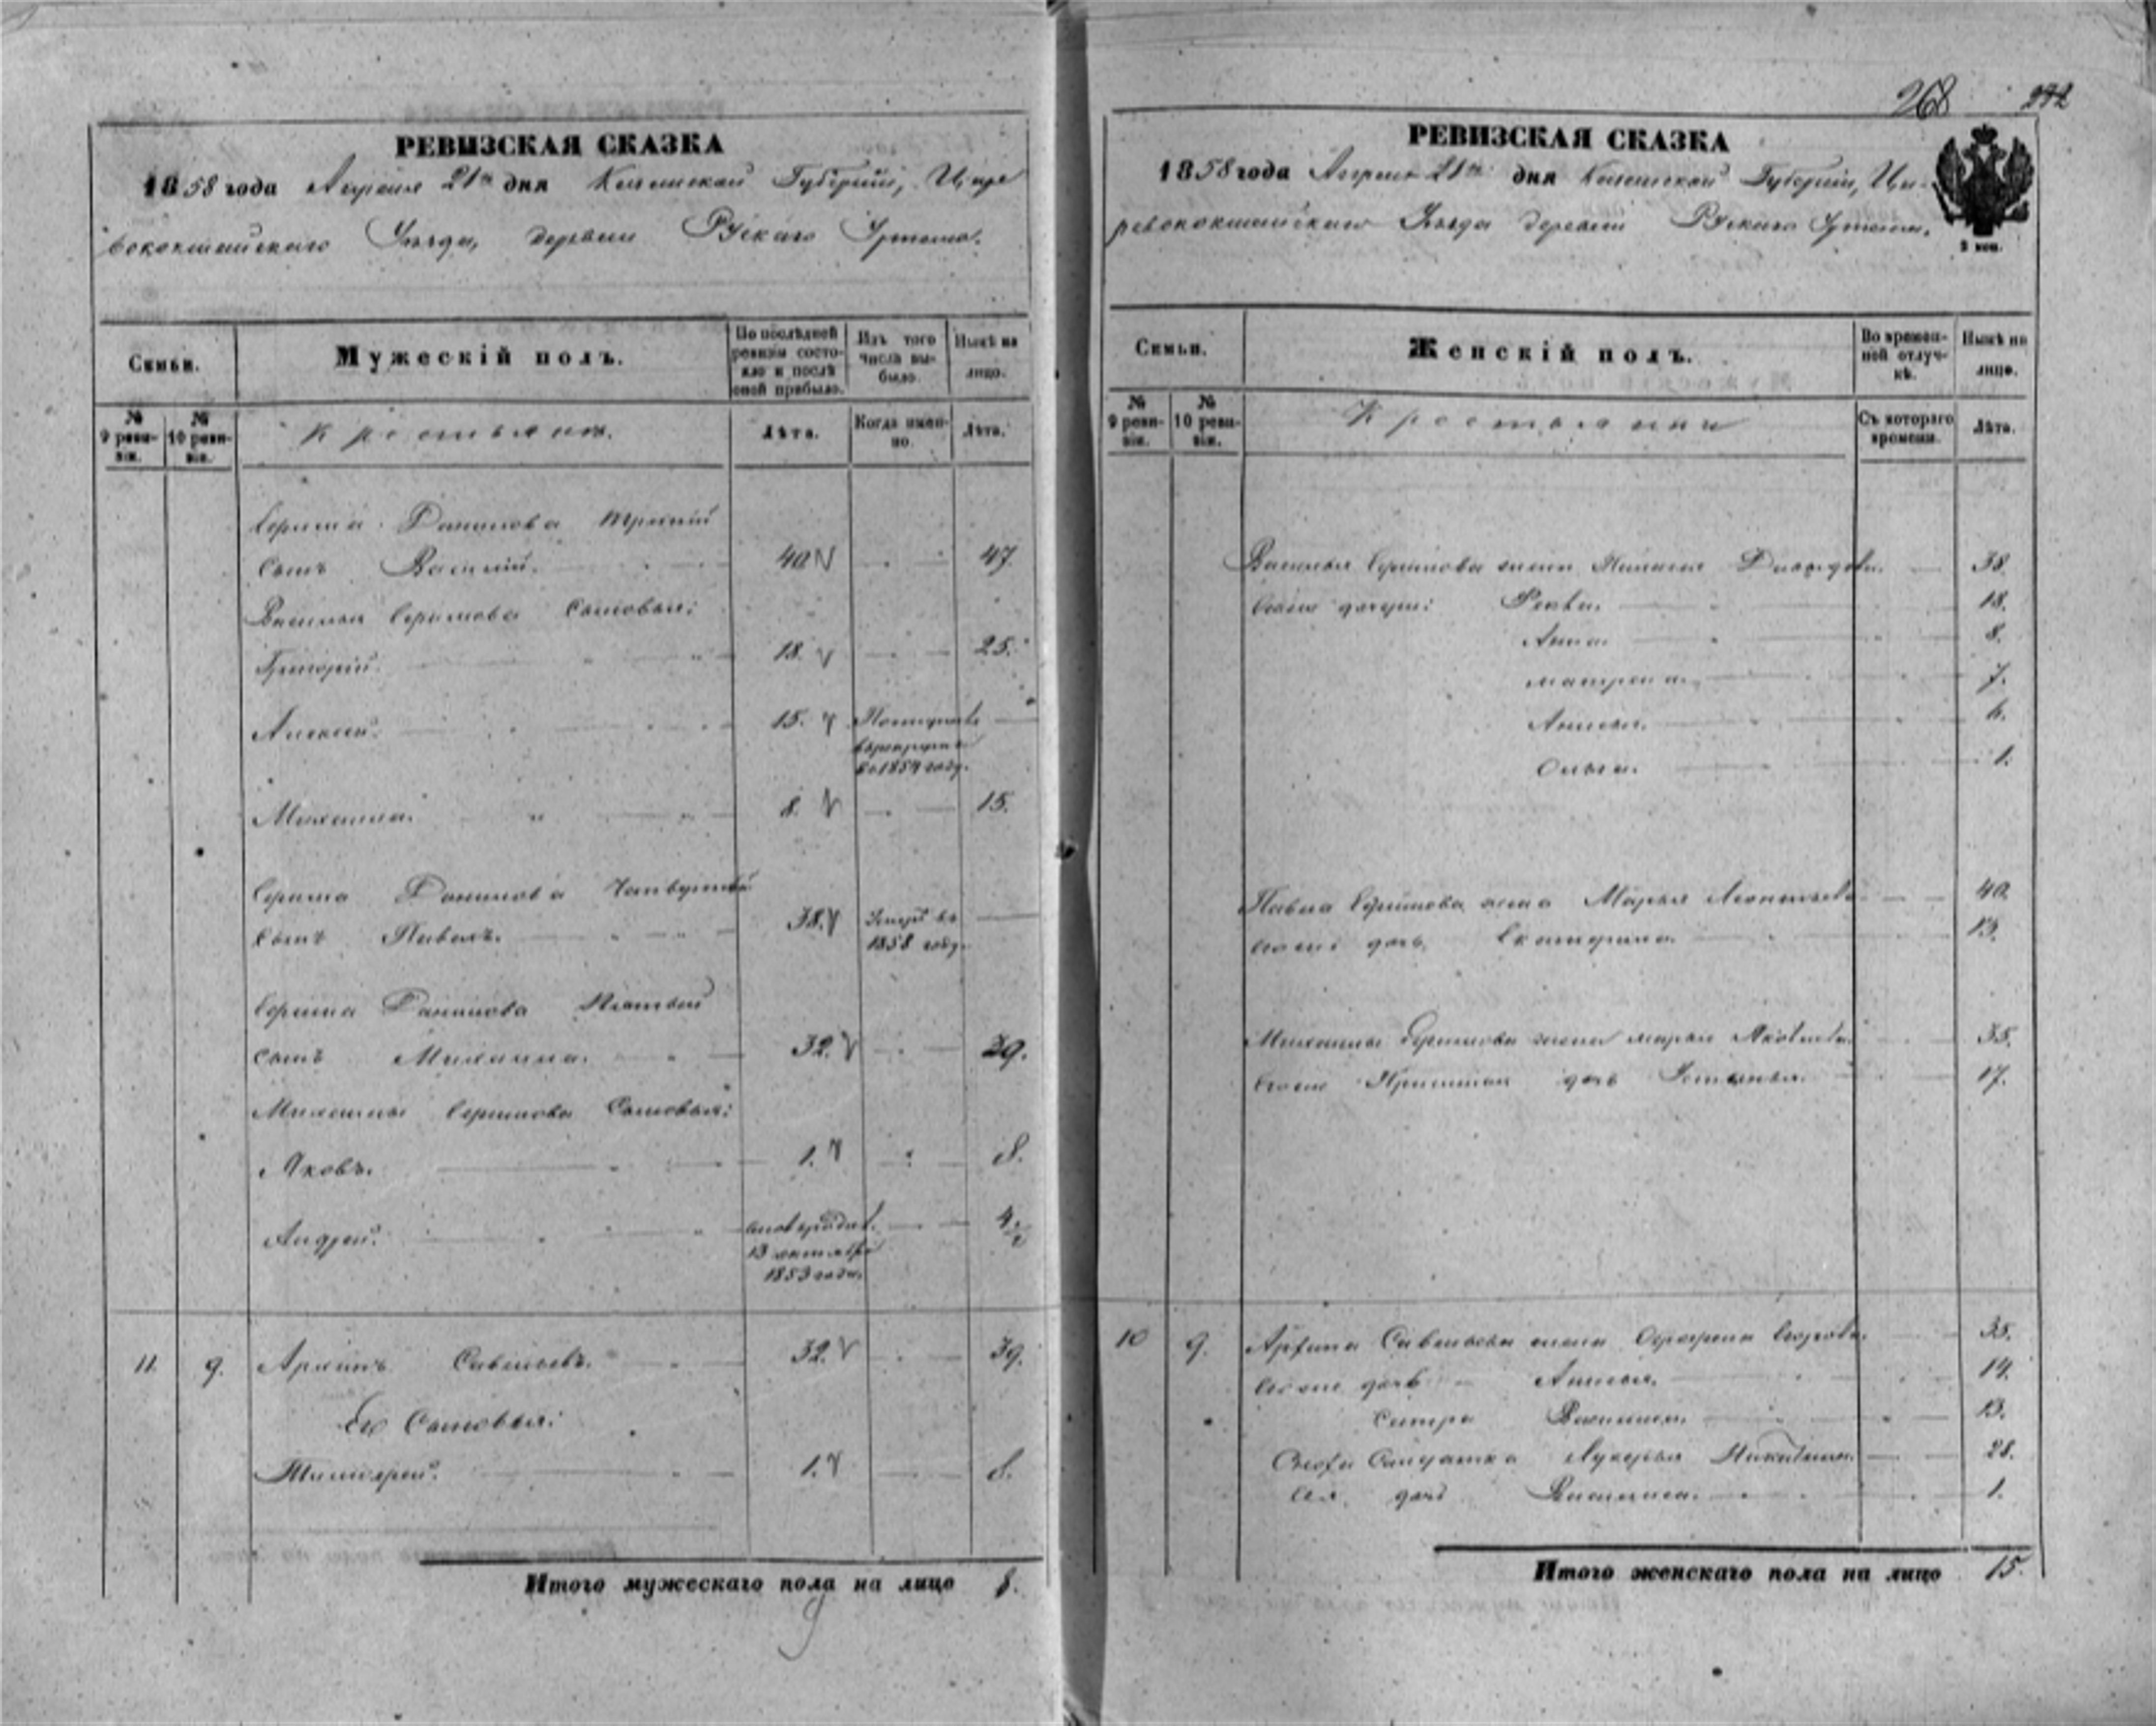 268 272
РЕВИЗСКАЯ СКАЗКА
1858 года Апреля 21го дня Казанской Губернии, Царе
вококшайскаго Уезда, деревни Рускаго Уртема.
Семьи.
Мужескій полъ.
По послѣдней ревизіи состояло и послѣ оной прибыло.
Изъ того числа выбыло.
Нынѣ на лицо.
№ 9 ревизіи.
№ 10 ревизіи.
Крестьянъ.
Лѣта.
Когда именно.
Лѣта.
Данилова третій
сынъ Василій. 40 47.
Василья сыновья:
Григорій. 18. 25.
Алексей. 15.
въ 1854 году.
Михаила. 8. 15.
Данилова Четвертый
сынъ Павелъ. 38. Умеръ въ
1858 году.
Данилова Пятый
сынъ Михаила. 32. 39.
Михаилы сыновья:
Яковъ. 1. 8.
Андрей. 4 1/2
13 октября
1853 года.
11. 9. Архипъ Савельевъ. 32. 39.
Его Сыновья:
Тимофей. 1. 8.
Итого мужескаго пола на лицо 8.
9
РЕВИЗСКАЯ СКАЗКА
1858 года Апреля 21го дня Казанской Губернии, Ца-
ревококшайскаго Уезда деревни Рускаго Уртема.
2 коп.
Семьи.
Женскій полъ.
Во временной отлучкѣ.
Нынѣ на лицо.
№ 9 ревизіи.
№ 10 ревизіи.
Крестьянъ
Съ котораго времени.
Лѣта.
Василья жена Давыдова. 38.
дочери: 18.
Анна. 8.
Матрена. 7.
Анисья. 6.
Ольга. 1.
Павла жена Марья Леонтьева 40.
дочь Екатерина. 13.
Михаилы жена Марья Яковлева. 35.
дочь 17.
10 9. Архипа Савельева жена Егорова. 35.
дочь Анисья. 14.
сестра Василиса. 13.
Солдатка Лукерья Никитина. 28.
Ея дочь Василиса. 1.
Итого женскаго пола на лицо 15.